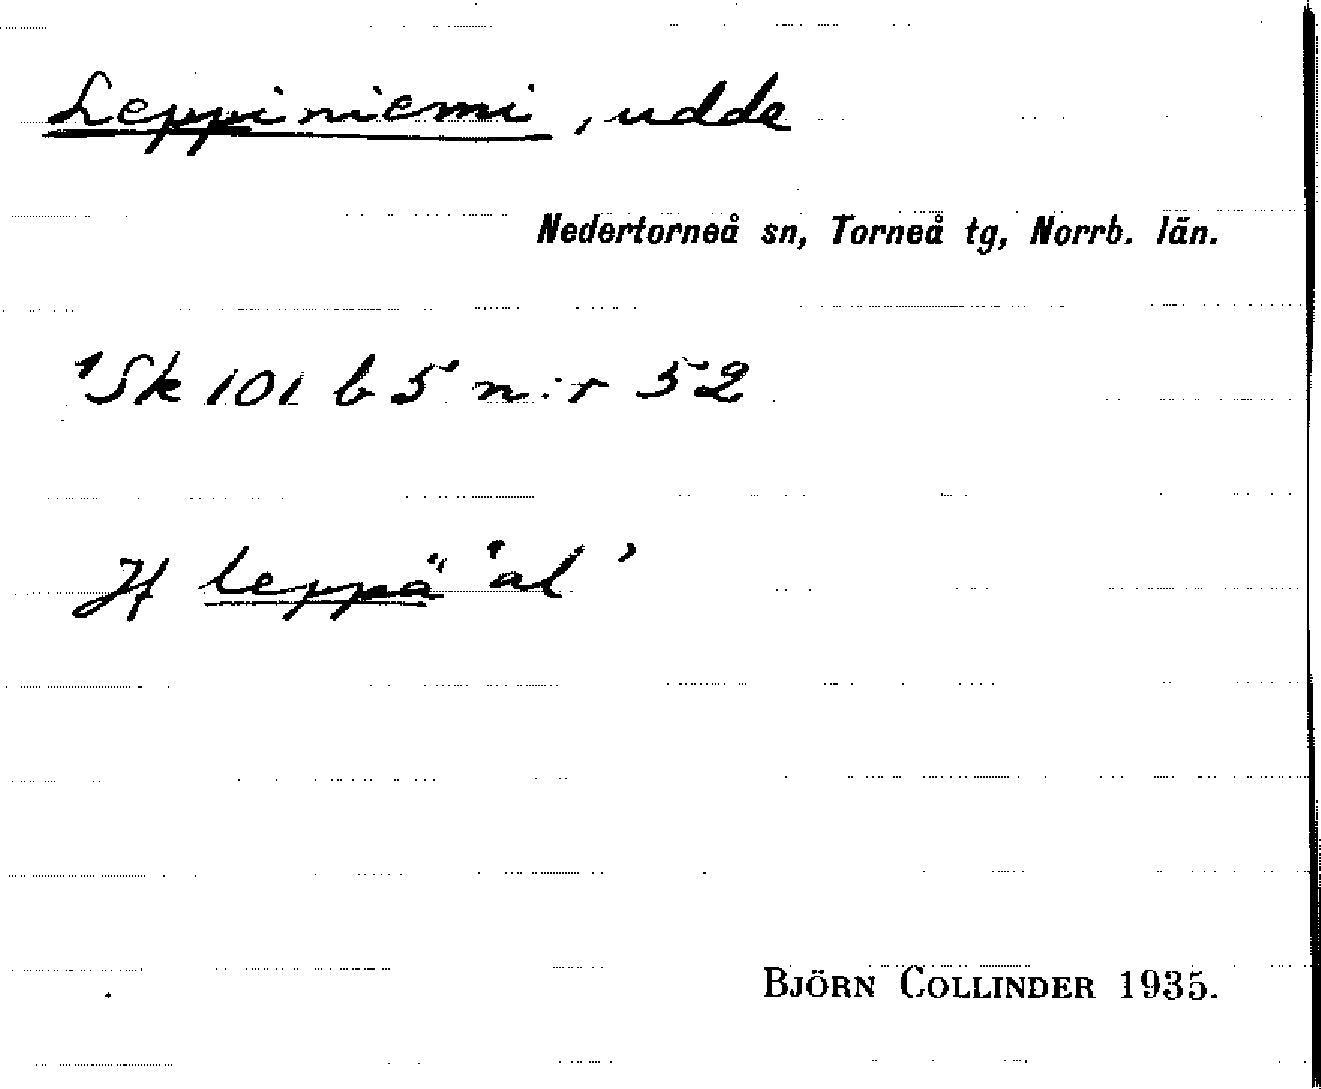 Leppiniemi, udde
Nedertorneå sn, Torneå tg, Norrb. län.
'Sk 101 b 5' n:r 52
Jf leppä 'al'
BJÖRN COLLINDER 1935.